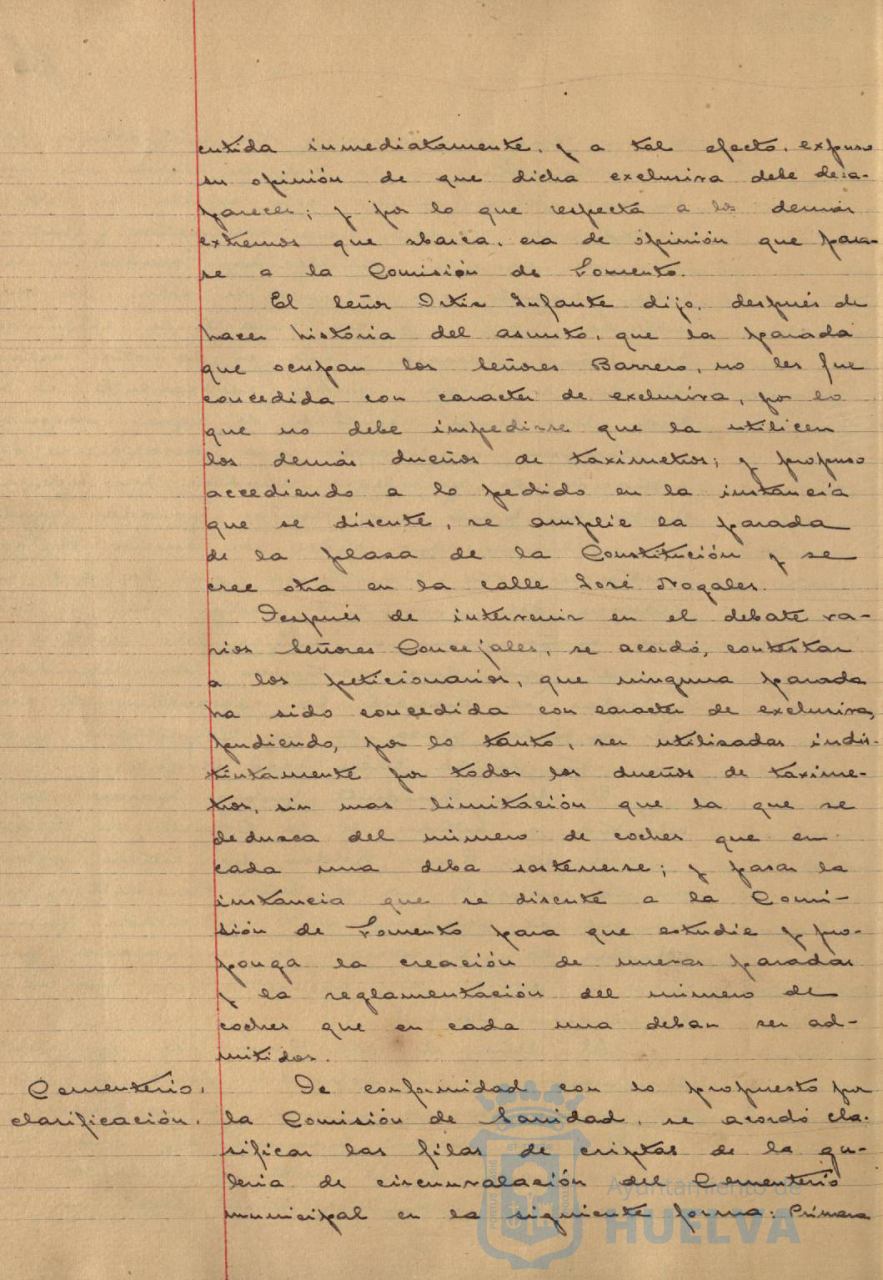 cutida inmediatamente, y a tal efecto, expuso
su opinión de que dicha exclusiva debe desa-
parecer; y por lo que respecta a los demás
extremos que abarca, era de opinión que pasa-
se a la Comisión de Fomento.
El Señor Ortiz Infante dijo, después de
hacer historia del asunto, que la parada
que ocupan los Señores Barrero, no les fue
concedida con caracter de exclusiva, por lo
que no debe impedirse que la utilicen
los demás dueños de taximetros; y propuso
accediendo a lo pedido en la instancia
que se discute, se amplie la parada
de la plasa de la Constitución y se
cree otra en la calle José Nogales.
Después de intervenir en el debate va-
rios Señores Concejales, se acordó, contestar
a los peticionarios, que ninguna parada
ha sido concedida con caracter de exclusiva,
pudiendo, por lo tanto, ser utilizadas indis-
tintamente por todos los dueños de taxime-
tros, sin mas limitación que la que se
deduzca del número de coches que en
cada una deba sostenerse; y pasar la
instancia que se discute a la Comi-
sión de Fomento para que estudie y pro-
ponga la creación de nuevas paradas
y la reglamentación del número de
coches que en cada una deban ser ad-
mitidos.
Cementerio, De conformidad con lo propuesto por
clasificación. la Comisión de Sanidad, se acordó cla-
sificar las filas de criptas de la ga-
leria de circunvalación del Cementerio
municipal en la siguiente forma: Primera
Ayuntamiento de
HUELVA